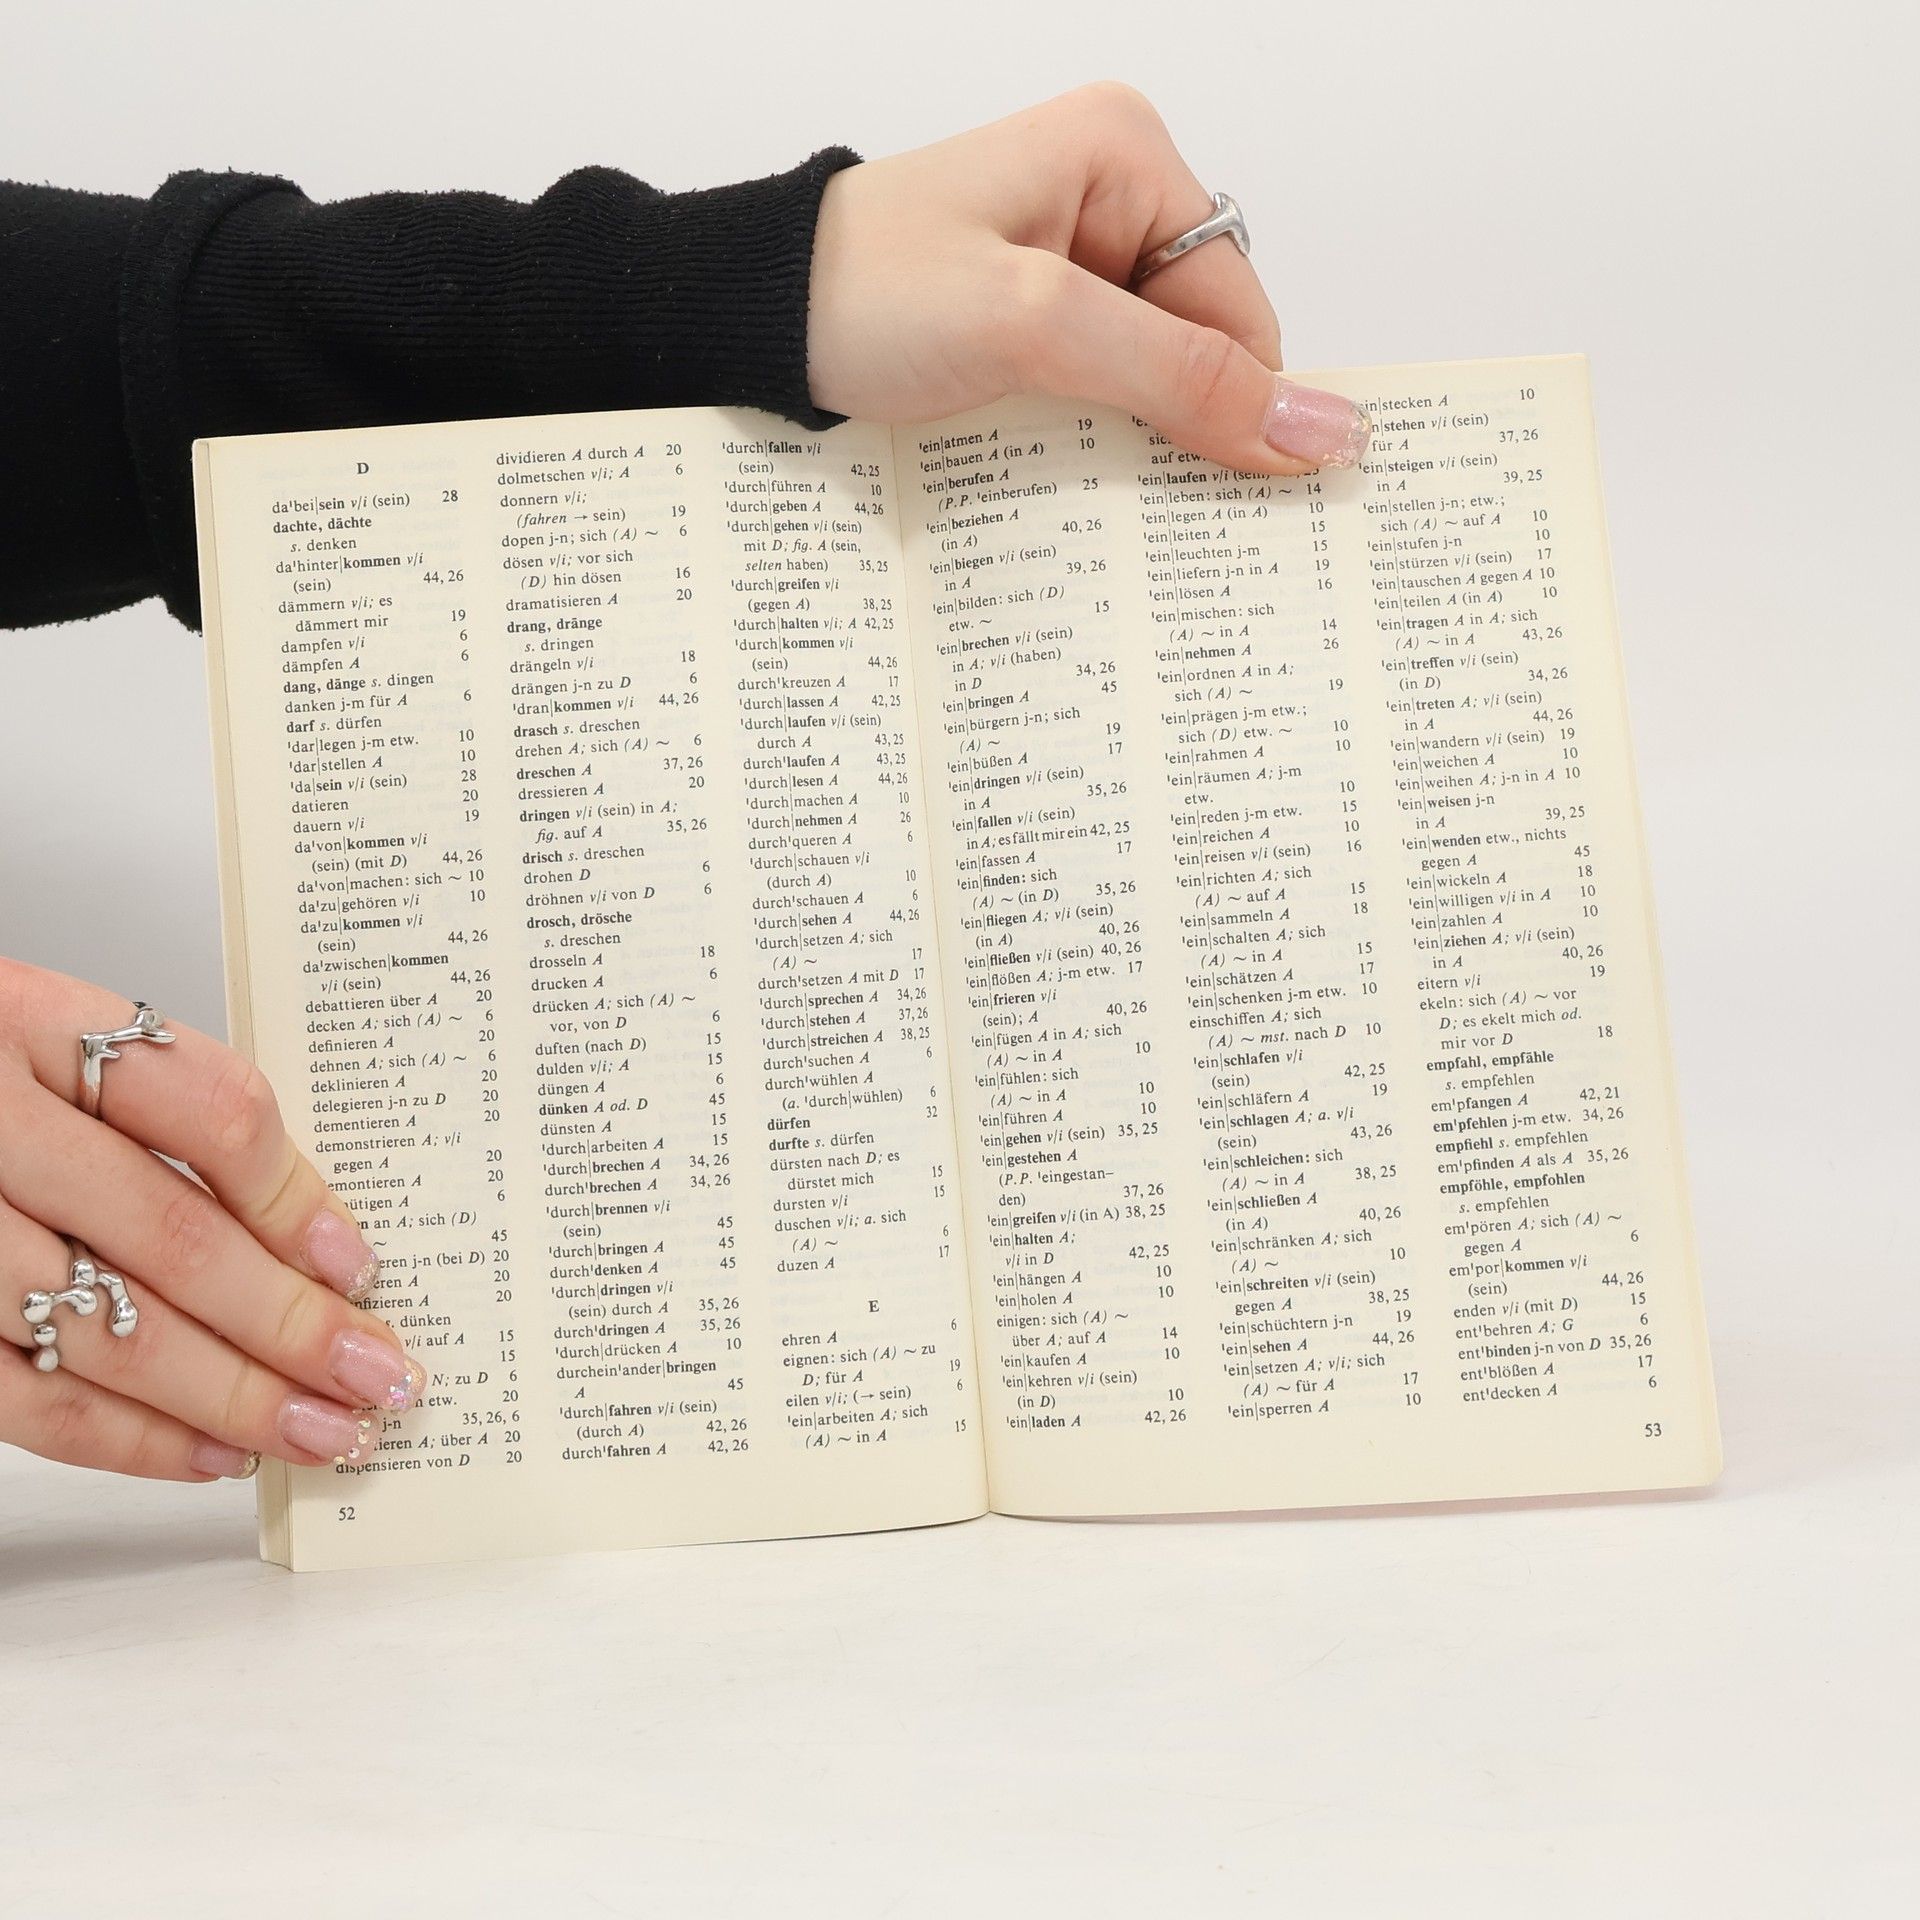 D
da'bei|sein v/i (sein) 28
dachte, dächte
s. denken
da'hinter|kommen v/i
(sein) 44, 26
dämmern v/i; es
dämmert mir 19
dampfen v/i 6
dämpfen A 6
dang, dänge s. dingen
danken j-m für A 6
darf s. dürfen
'dar|legen j-m etw. 10
'dar|stellen A 10
'da|sein v/i (sein) 28
datieren 20
dauern v/i 19
da'von|kommen v/i
(sein) (mit D) 44, 26
da'von|machen: sich ~ 10
da'zu|gehören v/i 10
da'zu|kommen v/i
(sein) 44, 26
da'zwischen|kommen
v/i (sein) 44, 26
debattieren über A 20
decken A; sich (A) ~ 6
definieren A 20
dehnen A; sich (A) ~ 6
deklinieren A 20
delegieren j-n zu D 20
dementieren A 20
demonstrieren A; v/i
gegen A 20
A 20
A 6
an A; sich (D)
~ 45
j-n (bei D) 20
A 20
A 20
s. dünken
v/i auf A 15
15
N; zu D 6
etw. 20
j-n 35, 26, 6
A; über A 20
dispensieren von D 20
52
dividieren A durch A 20
dolmetschen v/i; A 6
donnern v/i;
(fahren → sein) 19
dopen j-n; sich (A) ~ 6
dösen v/i; vor sich
(D) hin dösen 16
dramatisieren A 20
drang, dränge
s. dringen
drängeln v/i 18
drängen j-n zu D 6
'dran|kommen v/i 44, 26
drasch s. dreschen
drehen A; sich (A) ~ 6
dreschen A 37, 26
dressieren A 20
dringen v/i (sein) in A;
fig. auf A 35, 26
drisch s. dreschen
drohen D 6
dröhnen v/i von D 6
drosch, drösche
s. dreschen
drosseln A 18
drucken A 6
drücken A; sich (A) ~
vor, von D 6
duften (nach D) 15
dulden v/i; A 15
düngen A 6
dünken A od. D 45
dünsten A 15
'durch|arbeiten A 15
'durch|brechen A 34, 26
durch'brechen A 34, 26
'durch|brennen v/i
(sein) 45
'durch|bringen A 45
durch'denken A 45
'durch|dringen v/i
(sein) durch A 35, 26
durch'dringen A 35, 26
'durch|drücken A 10
durchein'ander|bringen
A 45
'durch|fahren v/i (sein)
(durch A) 42, 26
durch'fahren A 42, 26
'durch|fallen v/i
(sein) 42, 25
'durch|führen A 10
'durch|geben A 44, 26
'durch|gehen v/i (sein)
mit D; fig. A (sein,
selten haben) 35, 25
'durch|greifen v/i
(gegen A) 38, 25
'durch|halten v/i; A 42, 25
'durch|kommen v/i
(sein) 44, 26
durch'kreuzen A 17
'durch|lassen A 42, 25
'durch|laufen v/i (sein)
durch A 43, 25
durch'laufen A 43, 25
'durch|lesen A 44, 26
'durch|machen A 10
'durch|nehmen A 26
durch'queren A 6
'durch|schauen v/i
(durch A) 10
durch'schauen A 6
'durch|sehen A 44, 26
'durch|setzen A; sich
(A) ~ 17
durch'setzen A mit D 17
'durch|sprechen A 34, 26
'durch|stehen A 37, 26
'durch|streichen A 38, 25
durch'suchen A 6
durch'wühlen A
(a. 'durch|wühlen) 6
dürfen 32
durfte s. dürfen
dürsten nach D; es
dürstet mich 15
dursten v/i 15
duschen v/i; a. sich
(A) ~ 6
duzen A 17
E
ehren A 6
eignen: sich (A) ~ zu
D; für A 19
eilen v/i; (→ sein) 6
'ein|arbeiten A; sich
(A) ~ in A 15
'ein|atmen A 19
'ein|bauen A (in A) 10
'ein|berufen A
(P.P. 'einberufen) 25
'ein|beziehen A
(in A) 40, 26
'ein|biegen v/i (sein)
in A 39, 26
'ein|bilden: sich (D)
etw. ~ 15
'ein|brechen v/i (sein)
in A; v/i (haben)
in D 34, 26
'ein|bringen A 45
'ein|bürgern j-n; sich
(A) ~ 19
'ein|büßen A 17
'ein|dringen v/i (sein)
in A 35, 26
'ein|fallen v/i (sein)
in A; es fällt mir ein 42, 25
'ein|fassen A 17
'ein|finden: sich
(A) ~ (in D) 35, 26
'ein|fliegen A; v/i (sein)
(in A) 40, 26
'ein|fließen v/i (sein) 40, 26
'ein|flößen A; j-m etw. 17
'ein|frieren v/i
(sein); A 40, 26
'ein|fügen A in A; sich
(A) ~ in A 10
'ein|fühlen: sich
(A) ~ in A 10
'ein|führen A 10
'ein|gehen v/i (sein) 35, 25
'ein|gestehen A
(P.P. 'eingestan–
den) 37, 26
'ein|greifen v/i (in A) 38, 25
'ein|halten A;
v/i in D 42, 25
'ein|hängen A 10
'ein|holen A 10
einigen: sich (A) ~
über A; auf A 14
'ein|kaufen A 10
'ein|kehren v/i (sein)
(in D) 10
'ein|laden A 42, 26
auf etw.
'ein|laufen v/i (sein)
'ein|leben: sich (A) ~ 14
'ein|legen A (in A) 10
'ein|leiten A 15
'ein|leuchten j-m 15
'ein|liefern j-n in A 19
'ein|lösen A 16
'ein|mischen: sich
(A) ~ in A 14
'ein|nehmen A 26
'ein|ordnen A in A;
sich (A) ~ 19
'ein|prägen j-m etw.;
sich (D) etw. ~ 10
'ein|rahmen A 10
'ein|räumen A; j-m
etw. 10
'ein|reden j-m etw. 15
'ein|reichen A 10
'ein|reisen v/i (sein) 16
'ein|richten A; sich
(A) ~ auf A 15
'ein|sammeln A 18
'ein|schalten A; sich
(A) ~ in A 15
'ein|schätzen A 17
'ein|schenken j-m etw. 10
einschiffen A; sich
(A) ~ mst. nach D 10
'ein|schlafen v/i
(sein) 42, 25
'ein|schläfern A 19
'ein|schlagen A; a. v/i
(sein) 43, 26
'ein|schleichen: sich
(A) ~ in A 38, 25
'ein|schließen A
(in A) 40, 26
'ein|schränken A; sich
(A) ~ 10
'ein|schreiten v/i (sein)
gegen A 38, 25
'ein|schüchtern j-n 19
'ein|sehen A 44, 26
'ein|setzen A; v/i; sich
(A) ~ für A 17
'ein|sperren A 10
|stecken A 10
|stehen v/i (sein)
für A 37, 26
'ein|steigen v/i (sein)
in A 39, 25
'ein|stellen j-n; etw.;
sich (A) ~ auf A 10
'ein|stufen j-n 10
'ein|stürzen v/i (sein) 17
'ein|tauschen A gegen A 10
'ein|teilen A (in A) 10
'ein|tragen A in A; sich
(A) ~ in A 43, 26
'ein|treffen v/i (sein)
(in D) 34, 26
'ein|treten A; v/i (sein)
in A 44, 26
'ein|wandern v/i (sein) 19
'ein|weichen A 10
'ein|weihen A; j-n in A 10
'ein|weisen j-n
in A 39, 25
'ein|wenden etw., nichts
gegen A 45
'ein|wickeln A 18
'ein|willigen v/i in A 10
'ein|zahlen A 10
'ein|ziehen A; v/i (sein)
in A 40, 26
eitern v/i 19
ekeln: sich (A) ~ vor
D; es ekelt mich od.
mir vor D 18
empfahl, empfähle
s. empfehlen
em'pfangen A 42, 21
em'pfehlen j-m etw. 34, 26
empfiehl s. empfehlen
em'pfinden A als A 35, 26
empföhle, empfohlen
s. empfehlen
em'pören A; sich (A) ~
gegen A 6
em'por|kommen v/i
(sein) 44, 26
enden v/i (mit D) 15
ent'behren A; G 6
ent'binden j-n von D 35, 26
ent'blößen A 17
ent'decken A 6
53